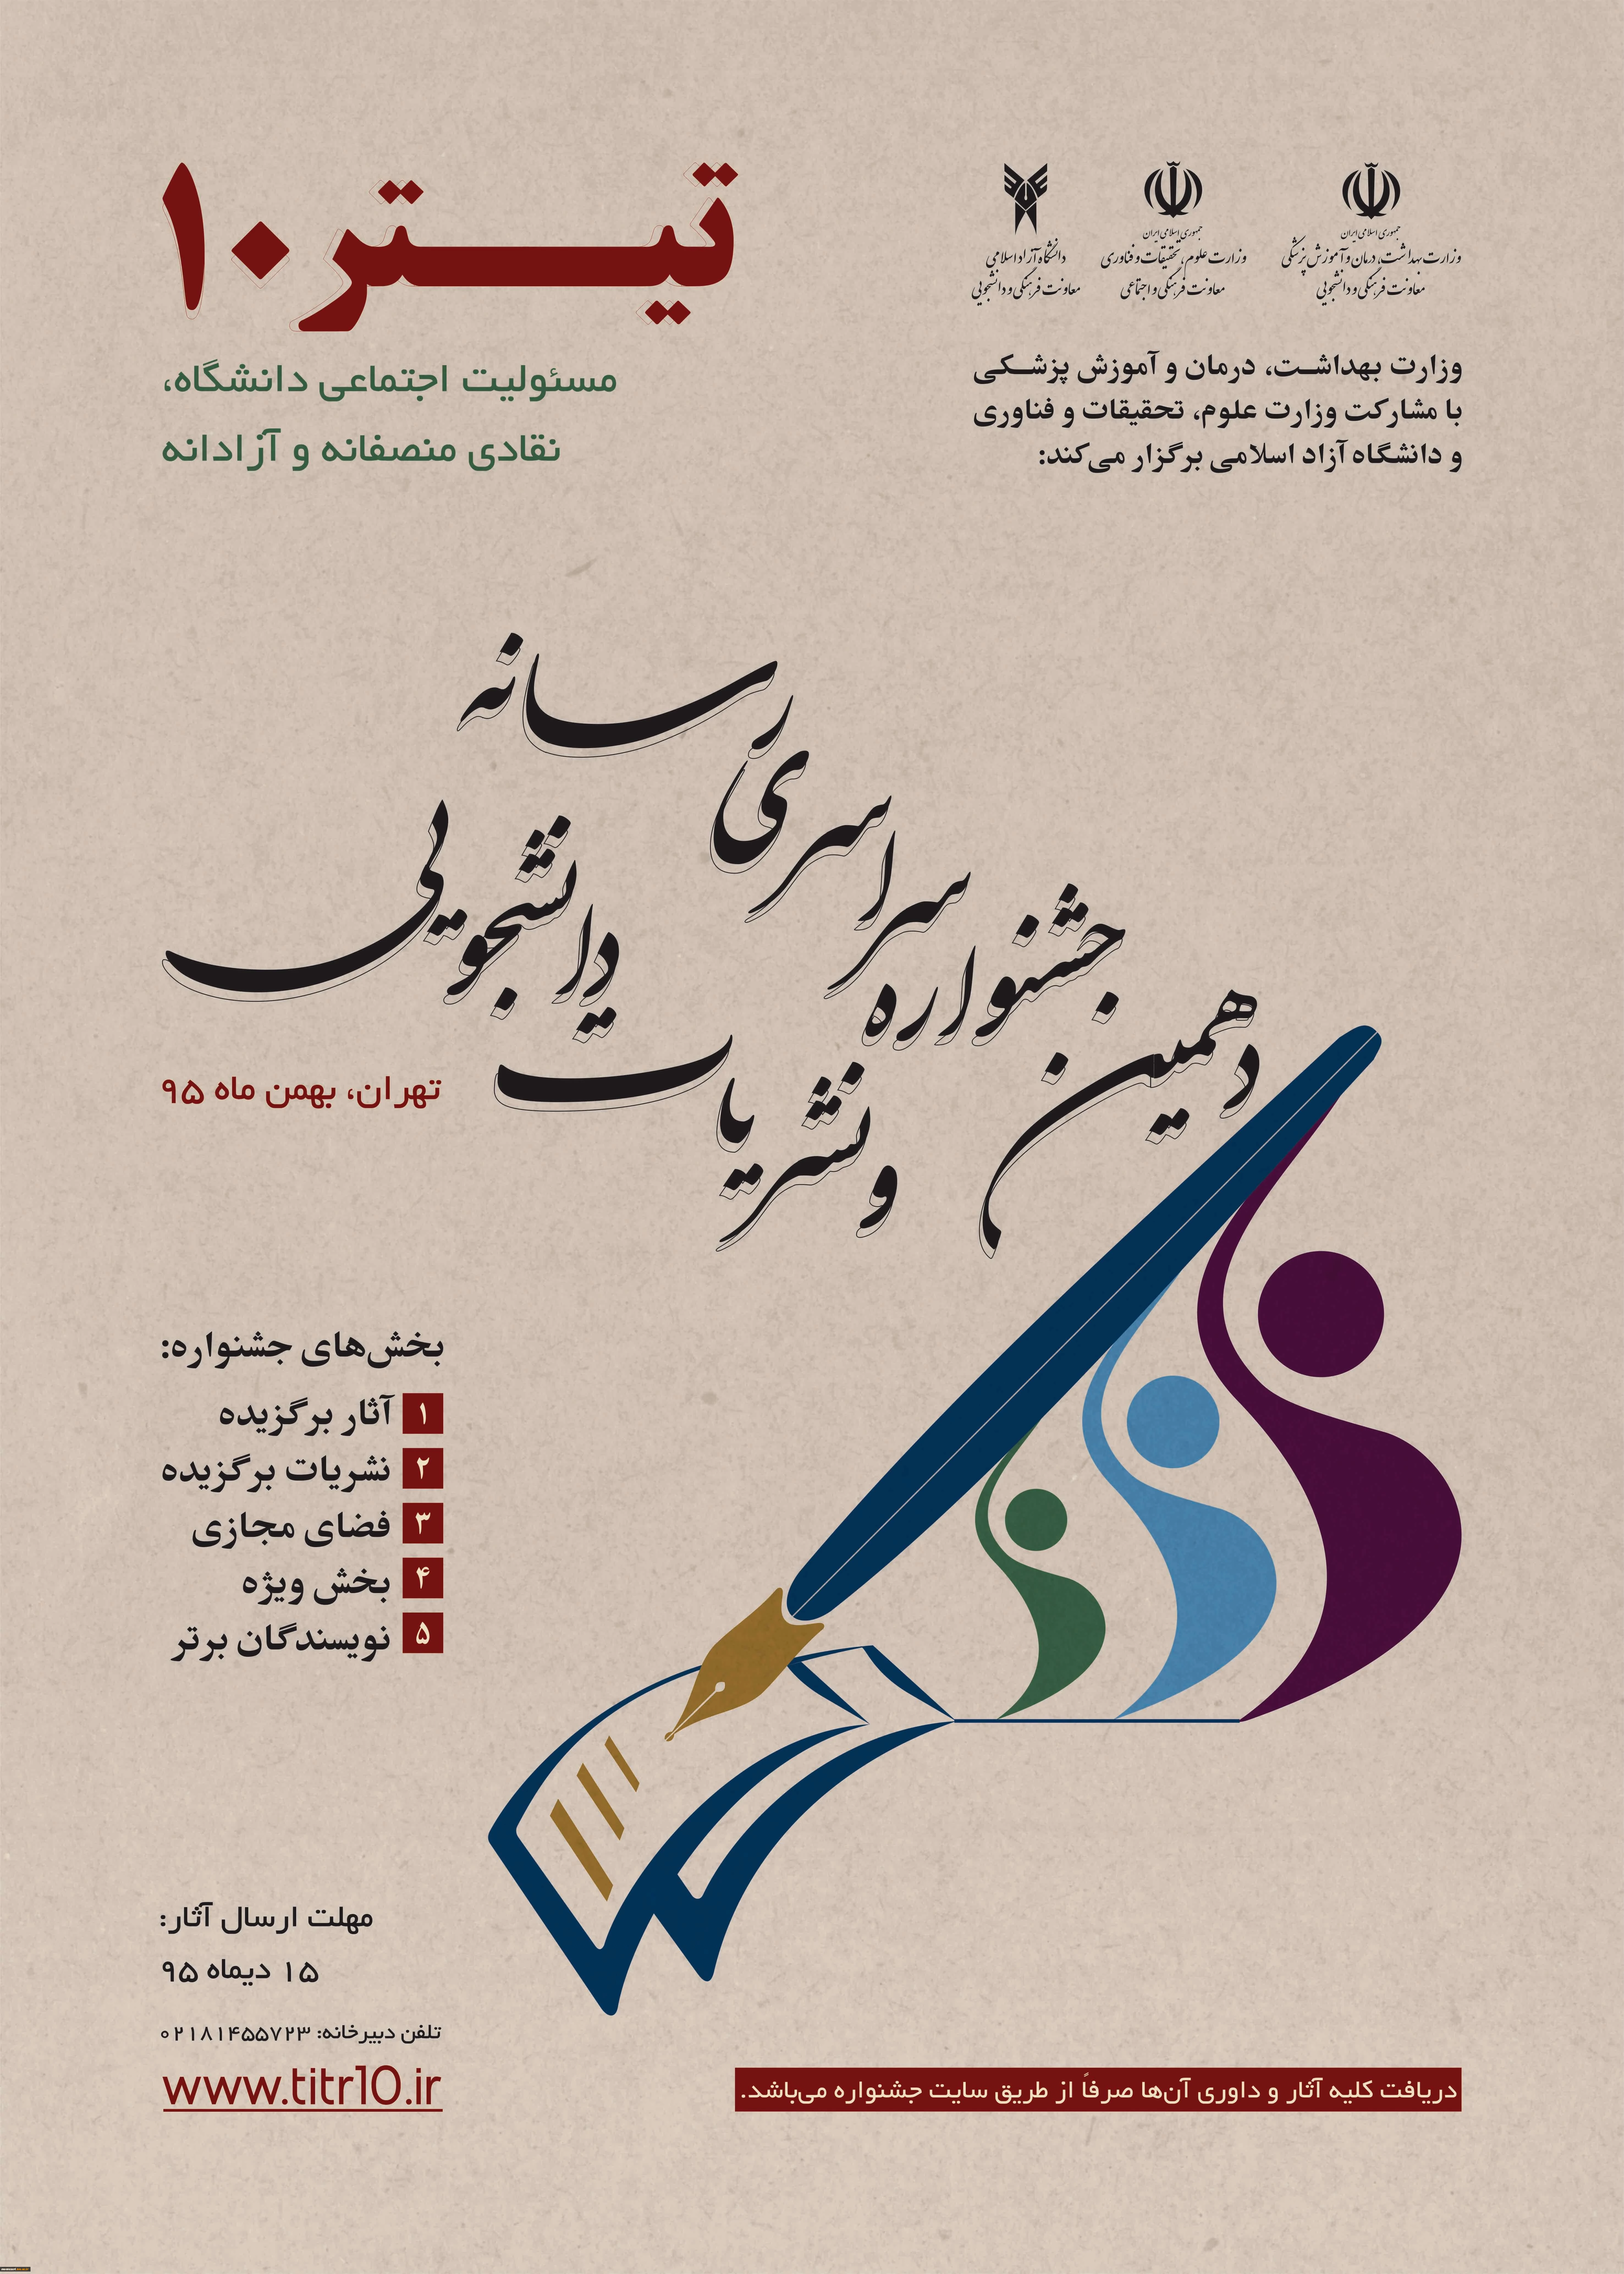 جمهوری اسلامی ایران
وزارت بهداشت، درمان و آموزش پزشکی
معاونت فرهنگی و دانشجویی
جمهوری اسلامی ایران
وزارت علوم، تحقیقات و فناوری
معاونت فرهنگی و اجتماعی
دانشگاه آزاد اسلامی
معاونت فرهنگی و دانشجویی
وزارت بهداشت، درمان و آموزش پزشکی
با مشارکت وزارت علوم، تحقیقات و فناوری
و دانشگاه آزاد اسلامی برگزار می‌کند:
تیتر۱۰
مسئولیت اجتماعی دانشگاه،
نقادی منصفانه و آزادانه
دهمین جشنواره سراسری رسانه
و نشریات دانشجویی
تهران، بهمن ماه ۹۵
بخش‌های جشنواره:
۱ آثار برگزیده
۲ نشریات برگزیده
۳ فضای مجازی
۴ بخش ویژه
۵ نویسندگان برتر
مهلت ارسال آثار:
۱۵ دیماه ۹۵
تلفن دبیرخانه: ۰۲۱۸۱۴۵۵۷۲۳
www.titr10.ir
دریافت کلیه آثار و داوری آن‌ها صرفاً از طریق سایت جشنواره می‌باشد.